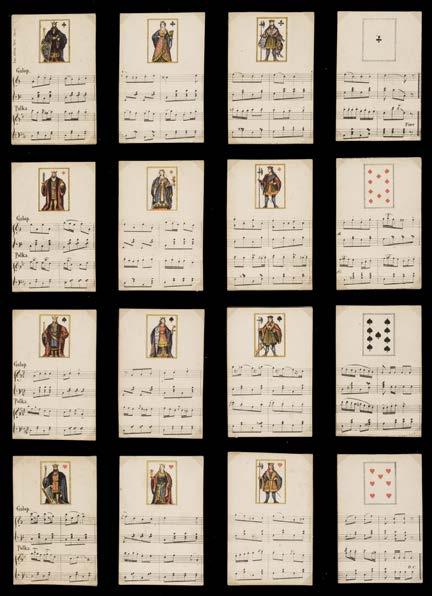 Galop
Polka
Fine
Galop
Polka
Galop
Polka
Galop
Polka
D.C.